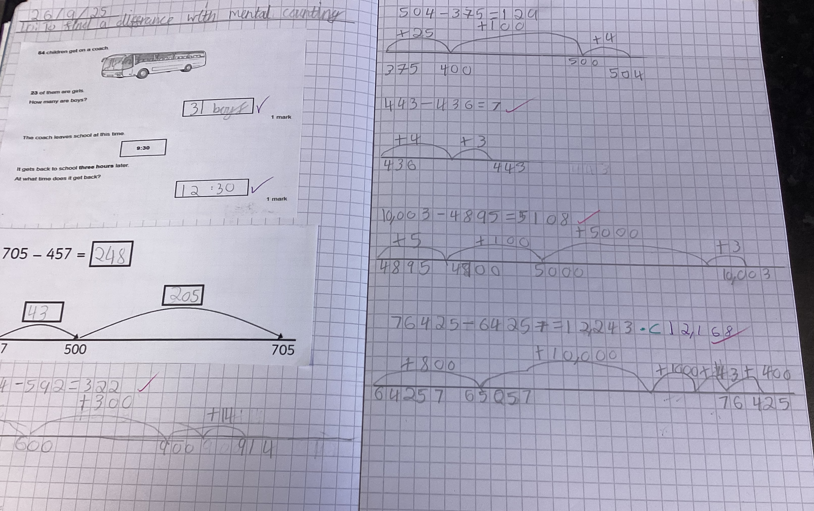 26/9/25
to find a difference with mental counting
54 children get on a coach
23 of them are girls.
How many are boys?
31 boys
1 mark
The coach leaves school at this time.
9:30
It gets back to school three hours later.
At what time does it get back?
12:30
1 mark
705 – 457 = 248
43
205
7 500 705
4-592=322
+300
+14
600 900 914
504-375=129
+25 +100 +4
375 400 500 504
443-436=7
+4 +3
436 443
10,003-4895=5108
+5 +100 +5000 +3
4895 4900 5000 10,003
76425-64257=12,243 • C 12,168
+800 +10,000 +1000 +400
64257 65057 76425